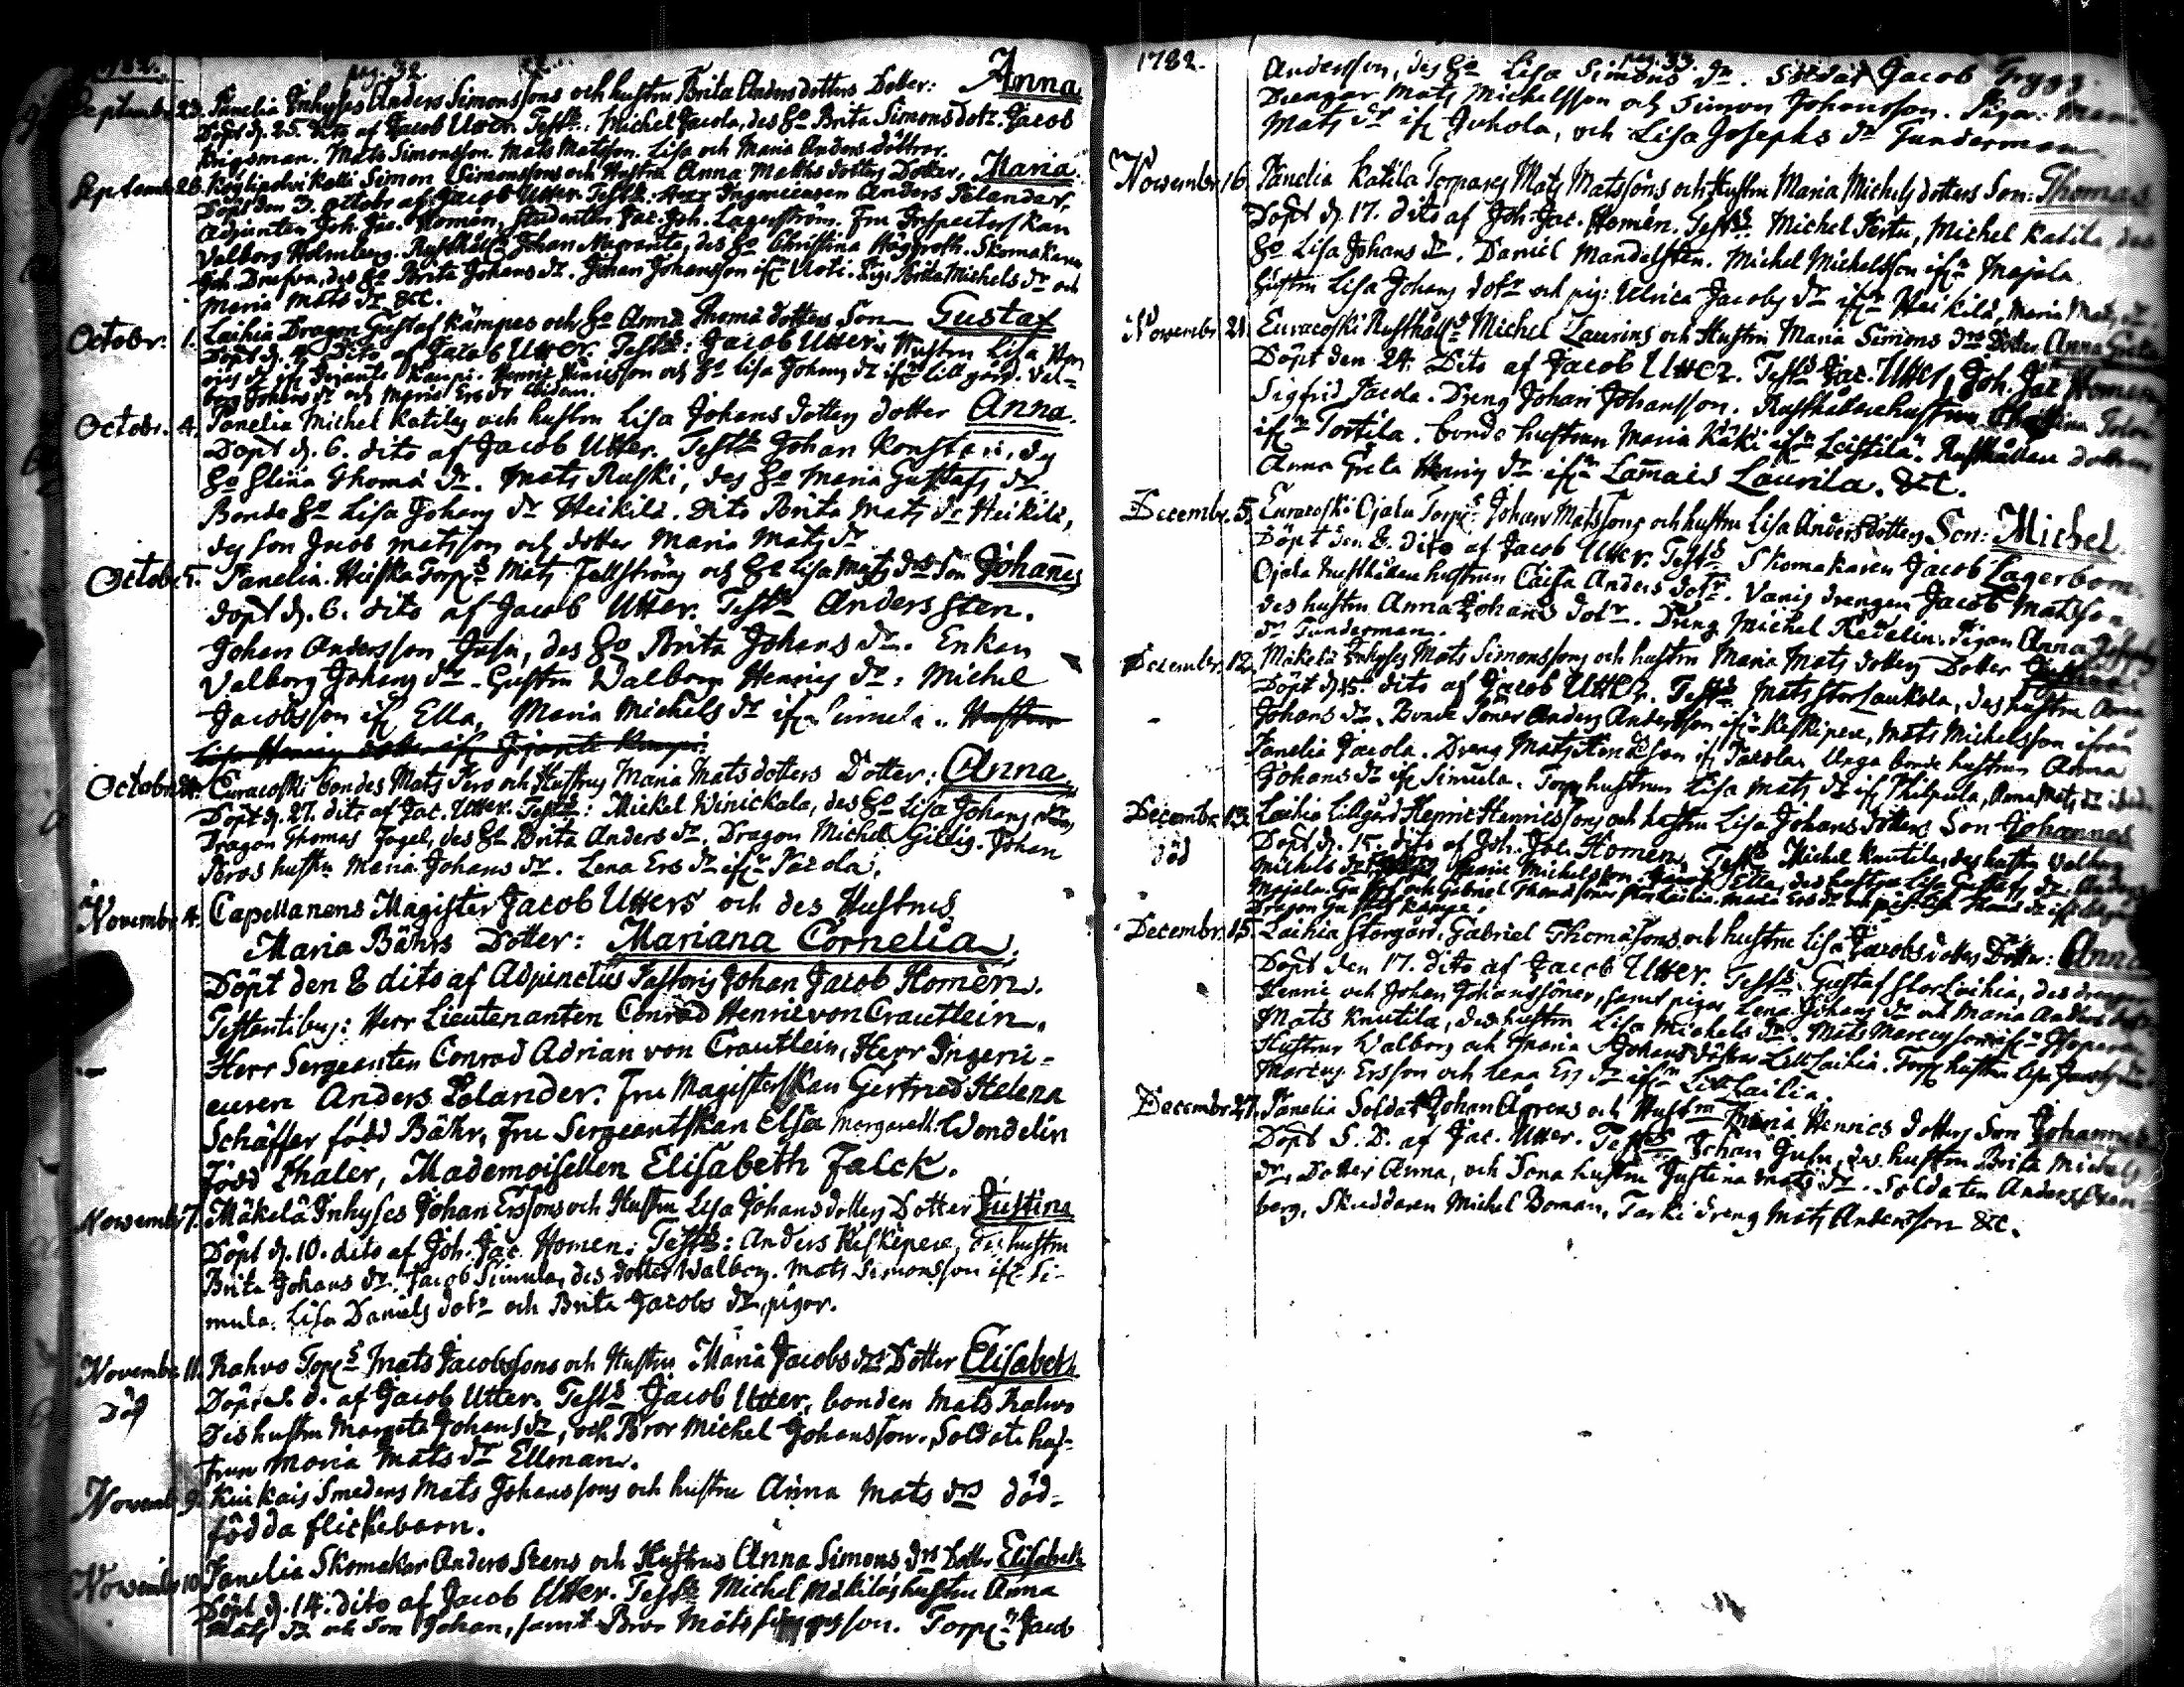 pag. 32.
Septembr. 23. Panelia Inhyses Anders Simonssons och hustru Brita Anders dotters Dotter: Anna
Döpt d. 25. dito af Jacob Utter. Test: Michel Jacola, des Ho Brita Simons dotr. Jacob
Krigsman. Mats Simonsson. Mats Matsson. Lisa och Maria Anders döttrar.
Septemb. 26. Simon Simonssons och Hustru Anna Matths dotters Dotter, Maria.
Döpt den 3. octobr af Jacob Utter. Test: Herr Ingenieuren Anders Pelander,
Adjuncten Joh. Jac. Homén, Studenten Jac. Joh. Lagerström. Fru Inspectorskan
Valborg Holmberg. Rusthåll: Johan des Ho Christina Häggroth. Skomakaren
Joh. des Ho Brita Johans dr. Johan Johansson ifr Uoti. Pig: Brita Michels dr och
Maria Mats dr &c.
Octobr. 1. Laihia Dragon Gustaf Kämpes och Ho Anna Thomä dotters Son Gustaf
Döpt d. 4. Dito af Jacob Utter. Test: Jacob Utter, Hustru Lisa Hen
rics dr ifr Kaupi. Henric Henricsson och Ho Lisa Johans dr ifrn Lillgård. Val-
borg Johans dr och Maria Ers dr ibidem.
Octobr. 4. Panelia Michel Katilas och hustru Lisa Johans dotters dotter Anna.
Döpt d. 6. dito af Jacob Utter. Test Johan Konsteri, des
Ho Stina Thomä dr. Mats Ruski, des Ho Maria Gustafs dr.
Bonde Ho Lisa Johans dr Heikilä. Dito Brita Mats dr Heikilä,
des son Jacob Matsson och dotter Maria Mats dr
Octobr. 5. Panelia. Heiska Torps Mats Fellströms och Ho Lisa Mats drs Son Johannes
döpt d. 6. dito af Jacob Utter. Test Anders Sten.
Johan Andersson Jusu, des Ho Brita Johans dr. Enkan
Valborg Johans dr. Hustru Walborg Henrics dr: Michel
Jacobsson ifr Ella, Maria Michels dr ifr Simula. Hustru
Lisa Henrics dotter ifr Kaupi.
Octobr. 24. Euracoski bondes Mats Pero och Hustrus Maria Mats dotters Dotter: Anna
Döpt d. 27. dito af Jac. Utter. Test: Mickel Winickala, des Ho Lisa Johans dr
Dragon Thomas Fogel, des Ho Brita Anders dr. Dragon Michel Gillig. Johan
Peros hustru Maria Johans dr. Lena Ers dr ifrn Jacola.
Novembr. 4. Capellanens Magister Jacob Utters och des Hustrus
Maria Bährs Dotter: Mariana Cornelia.
Döpt den 8 dito af Adjunctus Pastoris Johan Jacob Homén.
Testentibus: Herr Lieutenanten Conrad Henric von Crautlein.
Herr Sergeanten Conrad Adrian von Crautlein, Herr Ingeni-
euren Anders Pelander. Fru Magisterskan Gertried Helena
Schäffer född Bähr, Fru Sergeantskan Elsa Margareth. Wendelin
född Thaler, Mademoisellen Elisabeth Falck.
Novembr 7. Mäkelä Inhyses Johan Erssons och Hustru Lisa Johans dotters Dotter Justina
Döpt d. 10. dito af Joh. Jac. Homén. Test: Anders Keskipere, des hustru
Brita Johans dr. Jacob Simula, des dotter Walborg. Mats Simonsson ifr Si-
mula. Lisa Daniels dotr och Brita Jacobs dr, pigor.
Novembr. 11. Kahvo Torps Mats Jacobssons och Hustru Maria Jacobs drs Dotter Elisabeth
död Döpt S. d. af Jacob Utter. Test Jacob Utter, bonden Mats Kahvo
Des hustru Margeta Johans dr, och Bror Michel Johansson. Soldate hus-
trun Maria Mats dr Ellman.
Novemb. 9. Kiukais Smedens Mats Johanssons och hustru Anna Mats drs död-
födda flickebarn.
Novembr 10. Panelia Skomakar Anders Stens och Hustrus Anna Simons drs Dotter Elisabeth
Döpt d. 14. dito af Jacob Utter. Test Michel Mäkiläs hustru Anna
Mats dr och Son Johan, samt Bror Mats Simonsson. Torp: Jacob
1782. pag. 33.
Andersson, des Ho Lisa Simons dr. Soldat Jacob Trygg.
Drengar Mats Michelsson och Simon Johansson. Pigor: Maria
Mats dr ifr Juhola, och Lisa Josephs dr Tunderman
Novembr. 16. Panelia Katila Torpares Mats Matssons och Hustru Maria Michels dotters Son: Thomas
Döpt d. 17. dito af Joh. Jac. Homén. Test: Michel Pertu, Michel Katila, des
Ho Lisa Johans dr. Daniel Mandelsten. Michel Michelsson ifrn Majala
Hustru Lisa Johans dotr och pig: Ulrica Jacobs dr ifrn Heikilä, Maria Mats dr.
Novembr 21. Euracoski Rusthålls Michel Laurins och Hustru Maria Simons drs Dotter Anna Greta
Döpt den 24. Dito af Jacob Utter. Test Jac. Utter, Joh. Jac Homen
Sigfrid Jacola. Dreng Johan Johansson. Rusthållarehustrun Christina
ifrn Tortila. bonde hustrun Maria Käki ifrn Leistilä. Rusthållare dottren
Anna Greta Henrics dr ifrn Lammais Laurila. &c.
Decembr. 5. Euracoski Ojala Torps Johan Matssons och hustru Lisa Anders dotters Son: Michel
Döpt den 8. dito af Jacob Utter. Test Skomakaren Jacob Lagerbom.
Ojala rusthållarehustrun Caisa Anders dotr. drengen Jacob Matsson
des hustru Anna Johans dotr. Dreng Michel Redelin. Pigan Anna Josephs
dr Tunderman.
Decembr. 12. Mäkelä Inhyses Mats Simonssons och hustru Maria Mats dotters Dotter Justina
Döpt d. 15. dito af Jacob Utter. Test Mats Storlaukola, des hustru Anna
Johans dr. Bonde Söner Anders Andersson ifrn Keskipere, Mats Michelsson ifrån
Panelia Jacola. Dreng Mats Henricsson ifr Jacola. Unga bonde hustrun Anna
Johans dr ifr Simula. Torp hustrun Lisa Mats dr ifr Philpula, Anna Mats dr
Decembr. 13. Laihia Lillgård Henric Henricssons och hustru Lisa Johans dotters Son Johannes
död Döpt d. 15. dito af Joh. Jac. Homen. Test Michel Knutila, des hustru Valborg
Michels dr. Henric Michelsson Ella, des hustru Lisa Gustafs dr. Anders
Majala. Gustaf och Gabriel Thomässöner Storlaihia. Maria Ers dr och pig. Lisa Thomä dr ifr
Dragon Gustaf Kämpe.
Decembr. 15. Laihia Storgård. Gabriel Thomäsons och hustru Lisa Jacobs dotters Dotter: Anna
Döpt den 17. dito af Jacob Utter. Test: Gustaf Storlaihia, des drengar
Henric och Johan Johanssöner, samt pigor Lena Johans dr och Maria Anders dotr
Mats Knutila, des hustru Lisa Michels dr. Mats Marcusson ifrn
Hustrur Valborg och Maria Johans döttrar Lill Laihia. Torp hustru Lisa Jacobs dr
Marcus Ersson och Lena Ers dr ifrn Lill Laihia.
Decembr 27. Panelia Soldat Johan Ågrens och Hustru Maria Henrics dotters Son Johannes
Döpt S. D. af Jac. Utter. Test Johan Jusu, des hustru Brita Michels
dr, Dotter Anna, och Sona hustru Justina Mats dr. Soldaten Anders
berg, Skreddaren Michel Boman, Tarki dreng Mats Andersson &c.